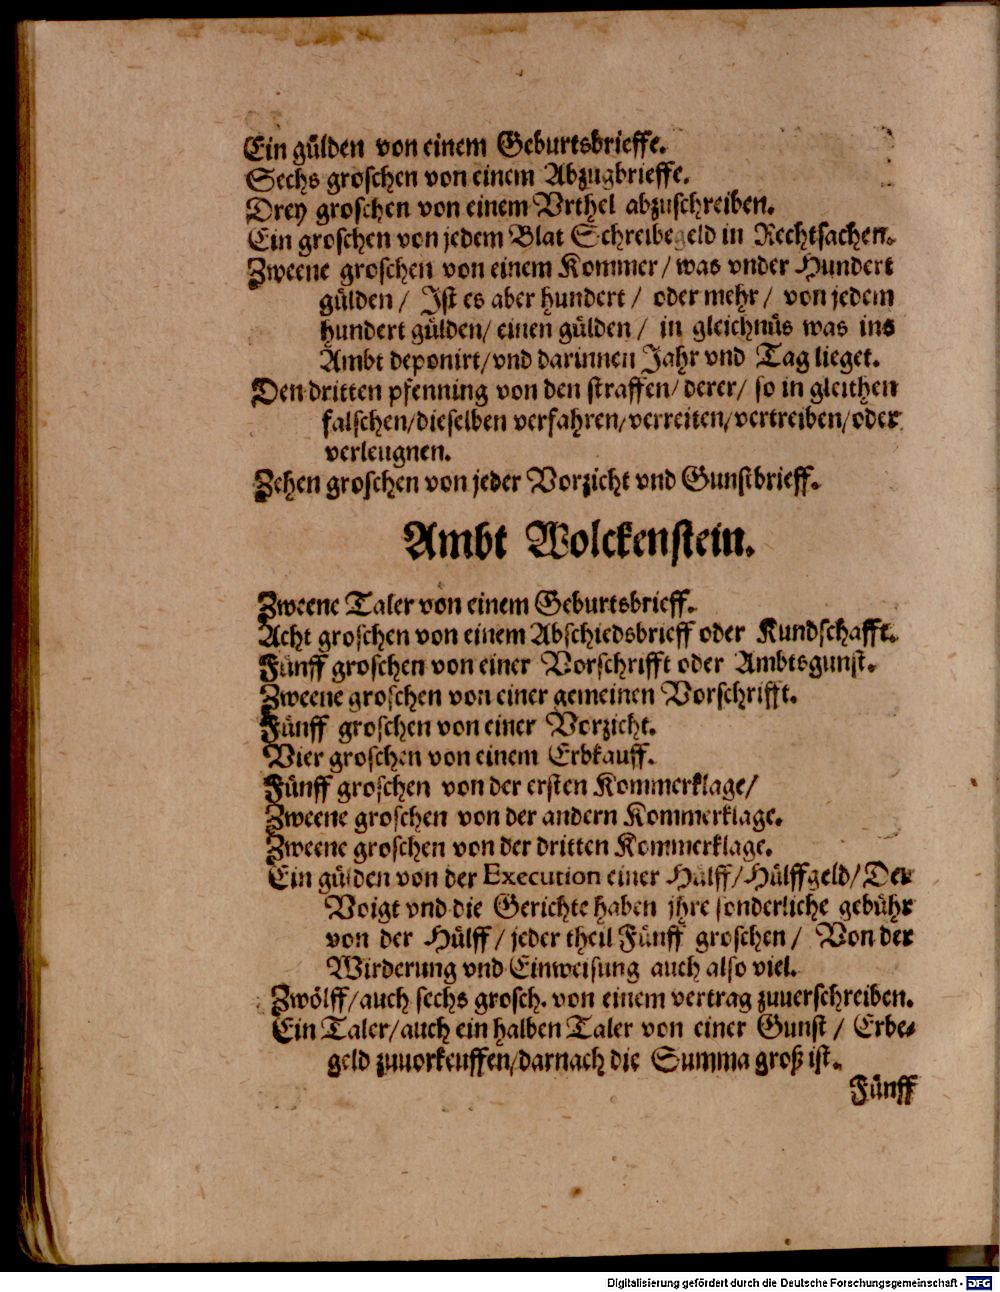 Ein gülden von einem Geburtsbrieffe.
Sechs groschen von einem Abzugbrieffe.
Drey groschen von einem Vrthel abzuschreiben.
Ein groschen von jedem Blat Schreibegeld in Rechtsachen.
Zweene groschen von einem Kommer/ was vnder Hundert
gülden/ Ist es aber hundert/ oder mehr/ von jedem
hundert gülden/ einen gülden/ in gleichnüs was ins
Ambt deponirt/ vnd darinnen Jahr vnd Tag lieget.
Den dritten pfenning von den straffen/ derer/ so in gleithen
falschen/ dieselben verfahren/ verreiten/ vertreiben/ oder
verleugnen.
Zehen groschen von jeder Vorzicht vnd Gunstbrieff.
Ambt Wolckenstein.
Zweene Taler von einem Geburtsbrieff.
Acht groschen von einem Abschiedsbrieff oder Kundschafft.
Fünff groschen von einer Vorschrifft oder Ambtsgunst.
Zweene groschen von einer gemeinen Vorschrifft.
Fünff groschen von einer Vorzicht.
Vier groschen von einem Erbkauff.
Fünff groschen von der ersten Kommerklage/
Zweene groschen von der andern Kommerklage.
Zweene groschen von der dritten Kommerklage.
Ein gülden von der Execution einer Hülff/ Hülffgeld/ Der
Voigt vnd die Gerichte haben jhre sonderliche gebühr
von der Hülff/ jeder theil Fünff groschen/ Von der
Wirderung vnd Einweisung auch also viel.
Zwölff/ auch sechs grosch. von einem vertrag zuuerschreiben.
Ein Taler/ auch ein halben Taler von einer Gunst/ Erbe-
geld zuuorkeuffen/ darnach die Summa groß ist.
Fünff
Digitalisierung gefördert durch die Deutsche Forschungsgemeinschaft - DFG